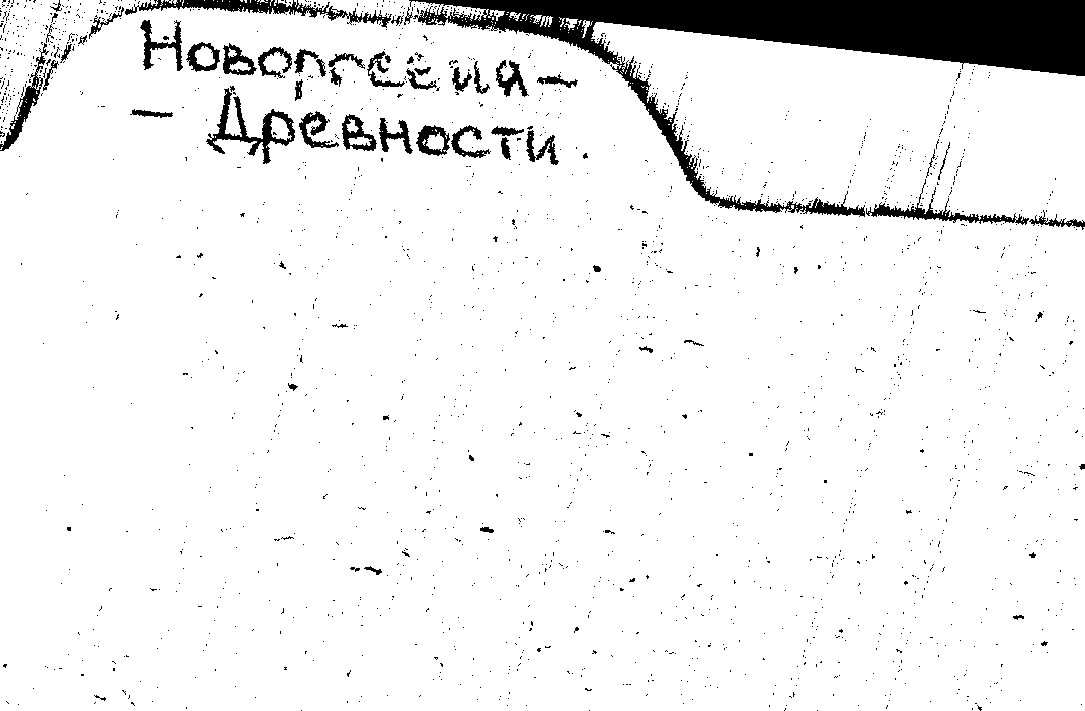 Новороссия -
- Древности.